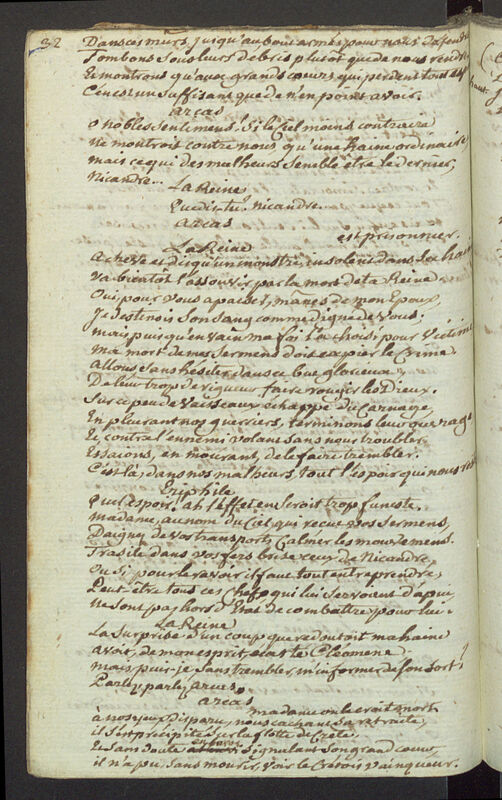 32
Dans ces murs, jusqu'au bout armés pour nous défendre
Tombons sous leurs debris plutot que de nous rendre
Et montrons qu'aux grands cœurs qui perdent tout
C'en est un suffisant que de n'en point avoir.
arcas
o nobles sentimens! Si le Ciel moins contraire
ne montroit contre nous qu'une haine ordinaire
mais ce qui des malheurs semble etre le dernier,
Nicandre...
La Reine
Que dis-tu? Nicandre.
arcas
est prisonnier.
La Reine
acheve et dis qu'un monstre, insolent dans sa haine
va bientôt l'assouvir par la mort de ta Reine
Oui, pour vous apaiser, mânes de mon Epoux,
Je destinois son sang comme digne de vous;
mais puisqu'en vain ma foi l'a choisi pour victime
ma mort de mes sermens doit expier le Crime.
allons sans hesiter dans ce but glorieux
De leur trop de rigueur faire rougir les Dieux.
Sur ce peu de vaisseaux échappé du Carnage,
En pleurant nos guerriers, terminons leur ouvrage
Et, contre l'ennemi volant sans nous troubler
Essaions, en mourant, de le faire trembler.
C'est là, dans nos malheurs, tout l'espoir qui nous reste
Eriphile
quel espoir! ah l'effet en seroit trop funeste.
madame, au nom du Ciel qui reçut vos sermens,
Daignez de vos transports calmer les mouvemens.
Trasile dans vos fers brise ceux de Nicandre,
Ou si pour le ravoir il faut tout entreprendre,
Peut-être tous ces Chefs qui lui servoient d'apui,
ne sont pas hors d'Etat de combattre pour lui.
La Reine
La surprise d'un coup que redoutoit ma haine
avoit, de mon esprit écarté Cléomene.
mais, puis-je sans trembler, m'informer de son sort?
Parlez, parlez, arcas.
arcas
madame on le croit mort
à nos yeux disparu, nous cachant sa retraite,
il s'est précipité sur la flote de Crete.
Et sans doute encore signalant son grand cœur,
il n'a pu, sans mourir, voir le Crétois vainqueur.